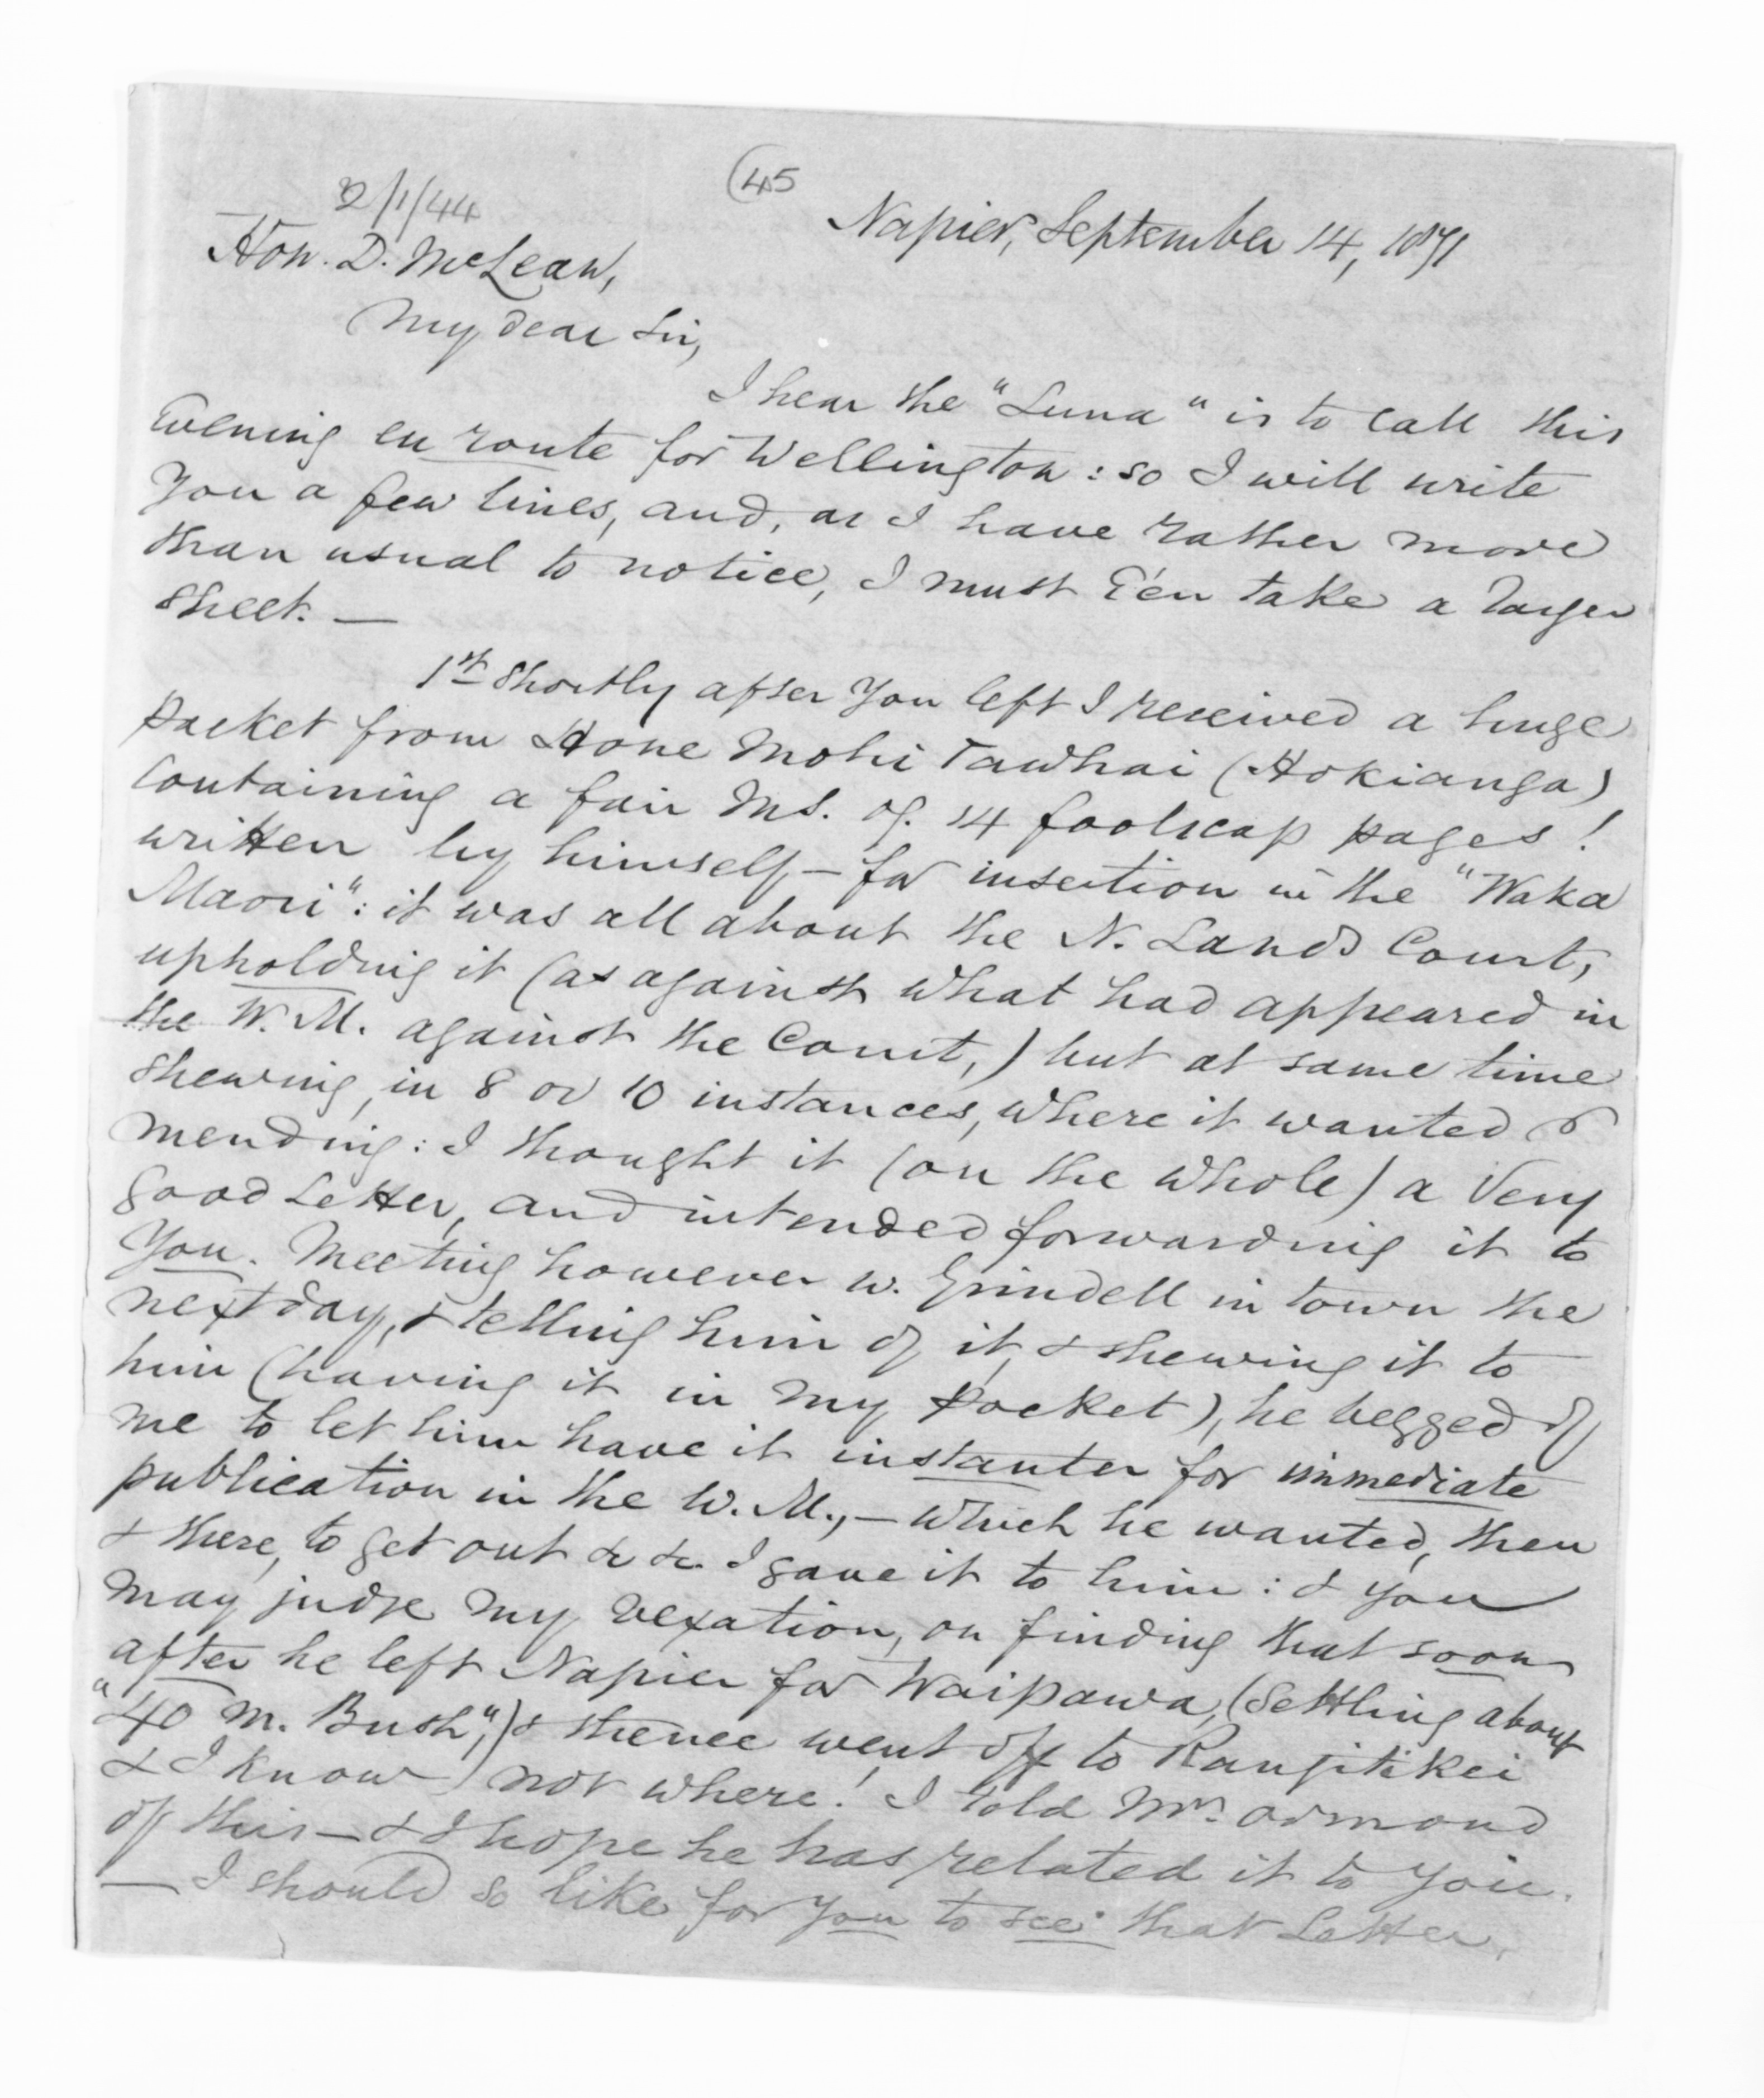 45
2/1/44
Napier, September 14, 1871
Hon. D. McLean,
My dear Sir,
I hear the "Luna" is to call this
Evening en route for Wellington: so I will write
You a few lines, and, as I have rather more
than usual to notice, I must E'en take a larger
sheet. —
1st Shortly after You left I received a huge
packet from Hone Mohi Tawhai (Hokianga)
containing a fair MS. of 14 foolscap pages!
written by himself — for insertion in the "Waka
Maori": it was all about the N. Lands Court,
upholding it (as against what had appeared in
the W. M. against the Court,) but at same time
shewing, in 8 or 10 instances, where it wanted
mending: I thought it (on the whole) a Very
good Letter, and intended forwarding it to
You. Meeting however W. Grindell in town the
next day, & telling him of it, & shewing it to
him (having it in my pocket), he begged of
me to let him have it instanter for immediate
publication in the W. M., — which he wanted, then
& there, to get out &c &c. I gave it to him: & you
may judge my vexation, on finding that soon
after he left Napier for Waipawa, (Settling about
"40 M. Bush",) & thence went off to Rangitikei
& I know not where! I told Mr. Ormond
of this — & I hope he has related it to You.
— I should so like for You to see that Letter.